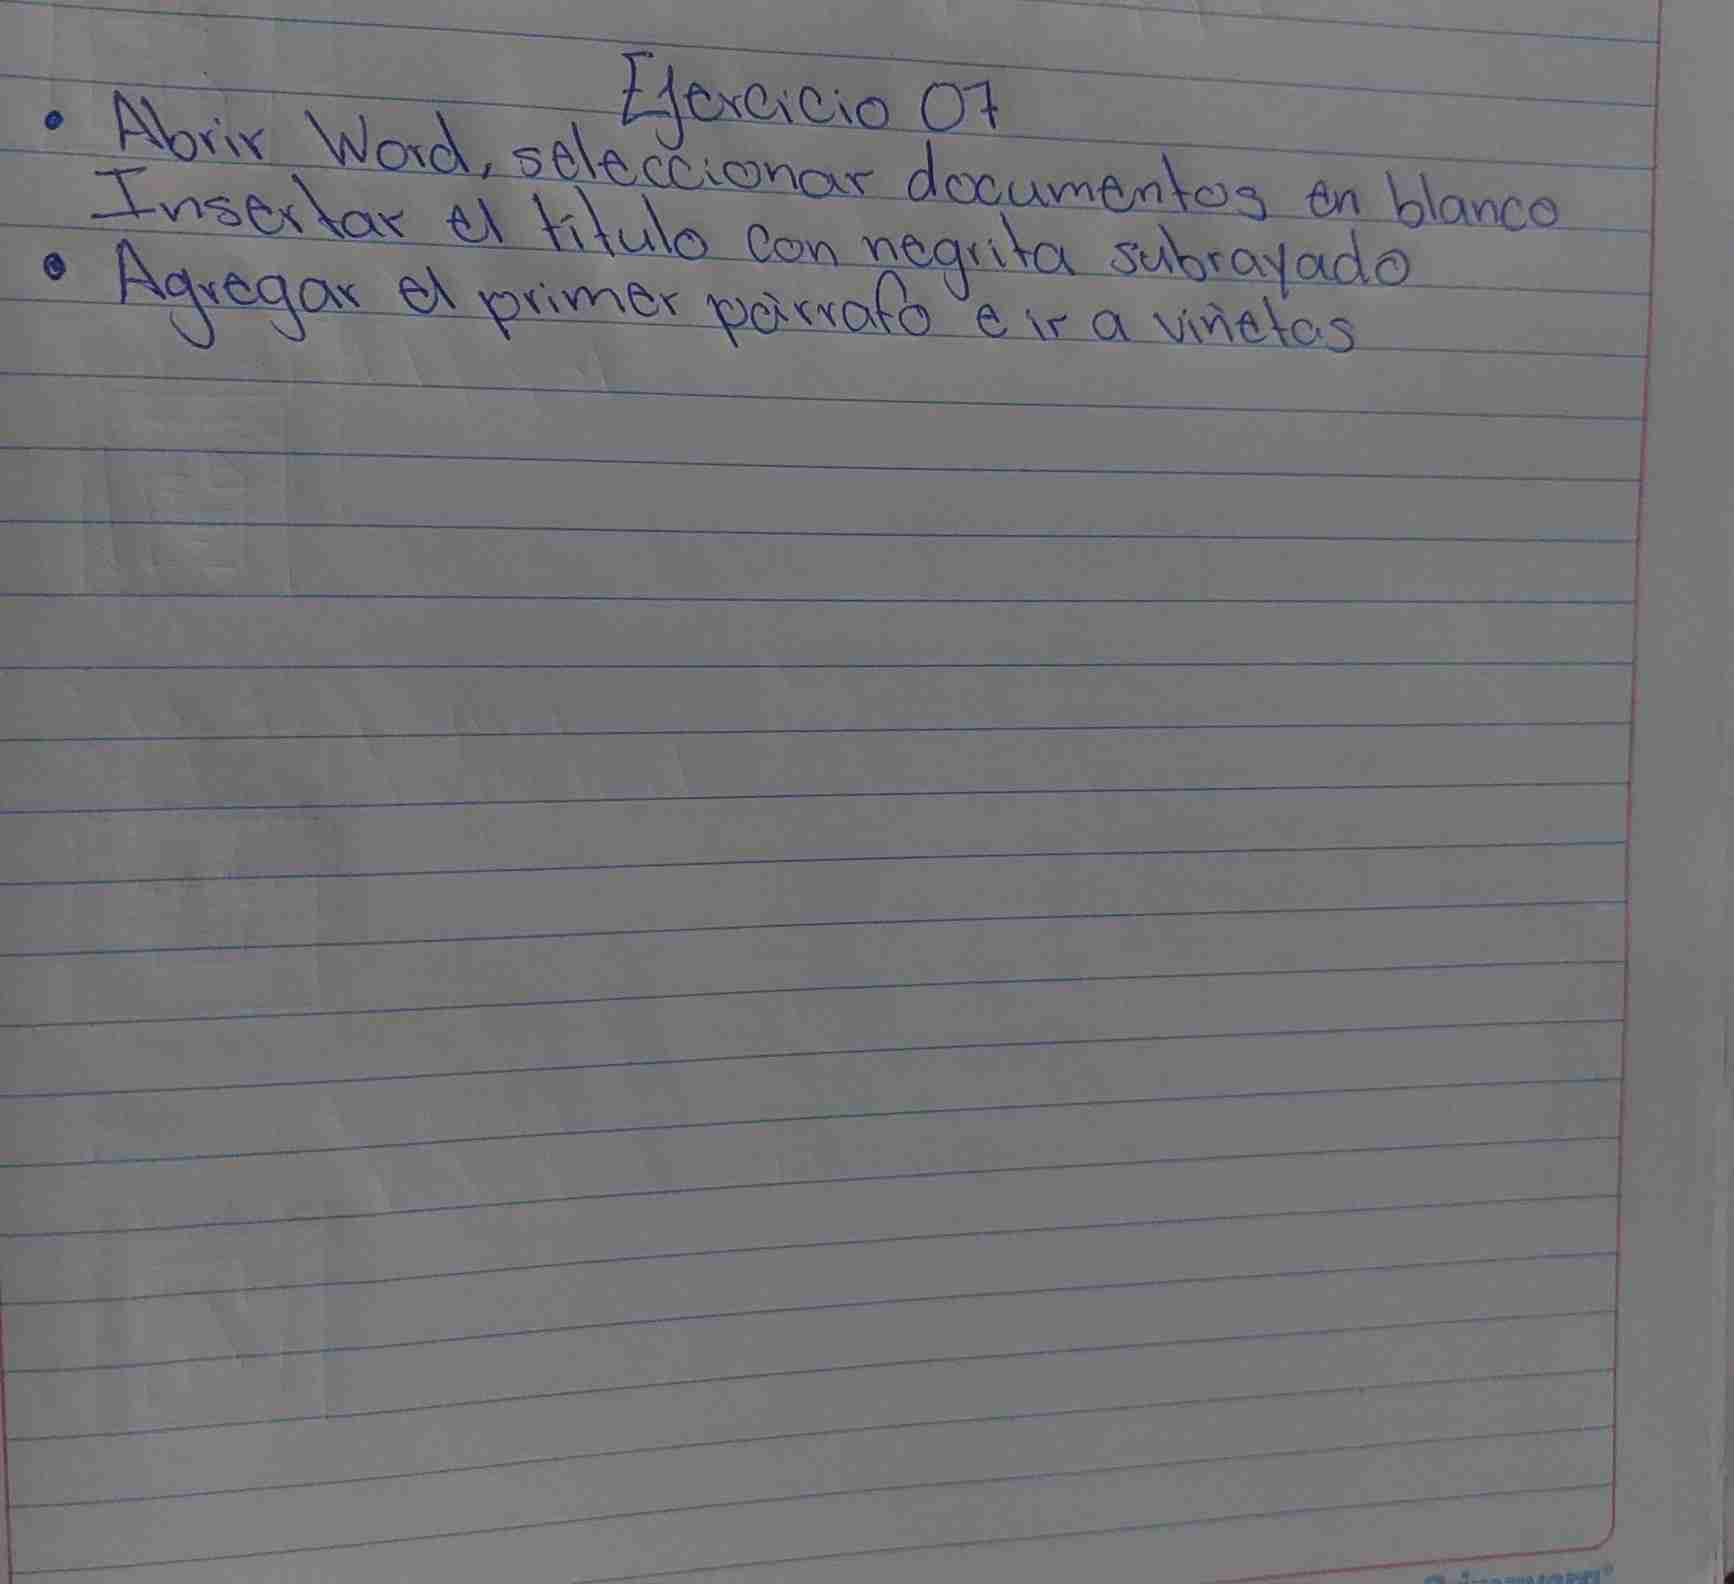 Ejercicio 07
• Abrir Word, seleccionar documentos en blanco
Insertar el titulo con negrita subrayado
• Agregar el primer párrafo e ir a viñetas